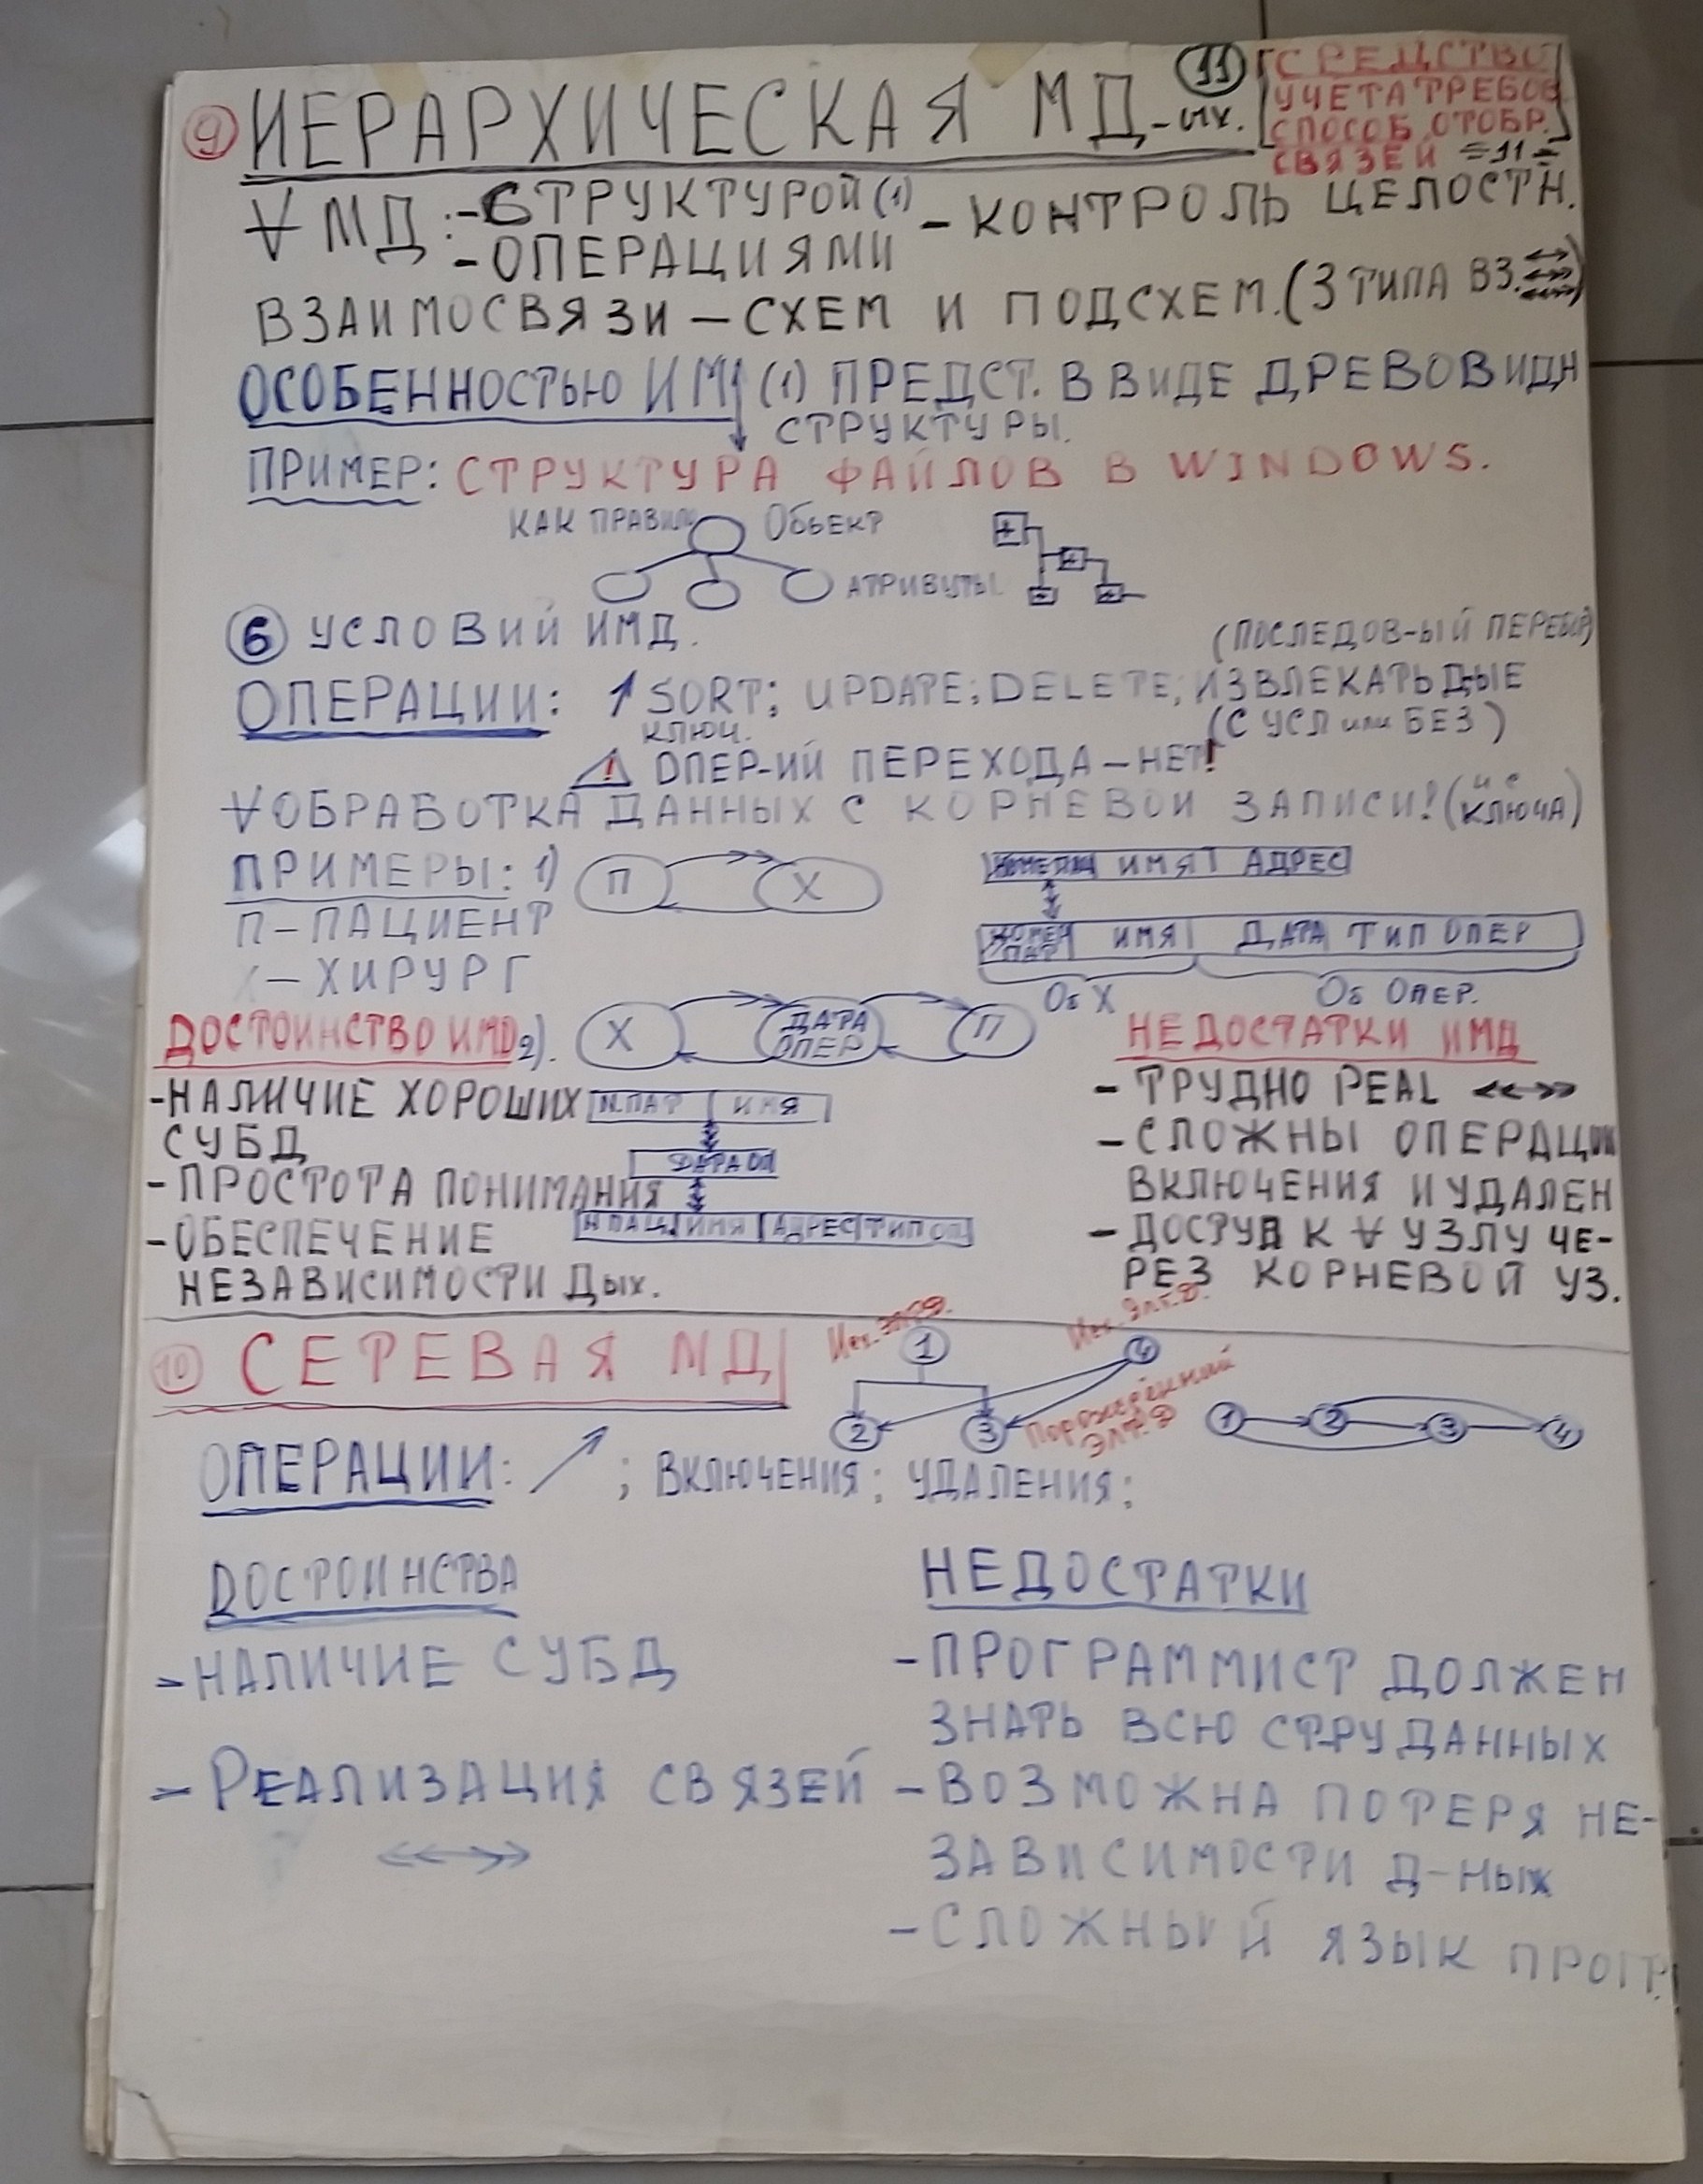 9 ИЕРАРХИЧЕСКАЯ МД-ых.
11
[СРЕДСТВО
УЧЕТА ТРЕБОВ
СПОСОБ ОТОБР.]
СВЯЗЕЙ =11=
∀ МД: -СТРУКТУРОЙ (1) - КОНТРОЛЬ ЦЕЛОСТН.
-ОПЕРАЦИЯМИ
ВЗАИМОСВЯЗИ - СХЕМ И ПОДСХЕМ. (3 ТИПА ВЗ. ↔)
ОСОБЕННОСТЬЮ ИМ (1) ПРЕДСТ. В ВИДЕ ДРЕВОВИДН
СТРУКТУРЫ.
ПРИМЕР: СТРУКТУРА ФАЙЛОВ В WINDOWS.
КАК ПРАВИЛО ОБЬЕКТ
АТРИБУТЫ
6 УСЛОВИЙ ИМД.
(ПОСЛЕДОВ-ЫЙ ПЕРЕБОР)
ОПЕРАЦИИ: ↑ SORT; UPDATE; DELETE; ИЗВЛЕКАТЬ Д-ЫЕ
КЛЮЧ. (С УСЛ или БЕЗ)
⚠ ОПЕР-ИЙ ПЕРЕХОДА - НЕТ!
∀ ОБРАБОТКА ДАННЫХ С КОРНЕВОЙ ЗАПИСИ! (и с КЛЮЧА)
ПРИМЕРЫ: 1) П Х
ИМЯ АДРЕС
П - ПАЦИЕНТ
НОМЕР ПАТ ИМЯ ДАТА ТИП ОПЕР
Х - ХИРУРГ
Об Х Об ОПЕР.
ДОСТОИНСТВО ИМD 2). Х ДАТА ОПЕР П
НЕДОСТАТКИ ИМД
-НАЛИЧИЕ ХОРОШИХ
СУБД
-ПРОСТОТА ПОНИМАНИЯ
-ОБЕСПЕЧЕНИЕ
НЕЗАВИСИМОСТИ Дых.
N.ПАТ ИМЯ
ДАТА ОП
Н ПАЦ ИМЯ АДРЕС ТИП ОП
- ТРУДНО РЕАL ↔
- СЛОЖНЫ ОПЕРАЦИИ
ВКЛЮЧЕНИЯ И УДАЛЕН
- ДОСТУП К ∀ УЗЛУ ЧЕ-
РЕЗ КОРНЕВОЙ УЗ.
10 СЕТЕВАЯ МД
Исх. ЭЛТ.Ф.
1
2 3
Исх. Элт.Ф.
4
Порожденный
ЭЛТ.Ф
1 2 3 4
ОПЕРАЦИИ: ↗; ВКЛЮЧЕНИЯ; УДАЛЕНИЯ;
ДОСТОИНСТВА
- НАЛИЧИЕ СУБД
- РЕАЛИЗАЦИЯ СВЯЗЕЙ
↔
НЕДОСТАТКИ
- ПРОГРАММИСТ ДОЛЖЕН
ЗНАТЬ ВСЮ СТРУ ДАННЫХ
- ВОЗМОЖНА ПОТЕРЯ НЕ-
ЗАВИСИМОСТИ Д-НЫХ
- СЛОЖНЫЙ ЯЗЫК ПРОГР.